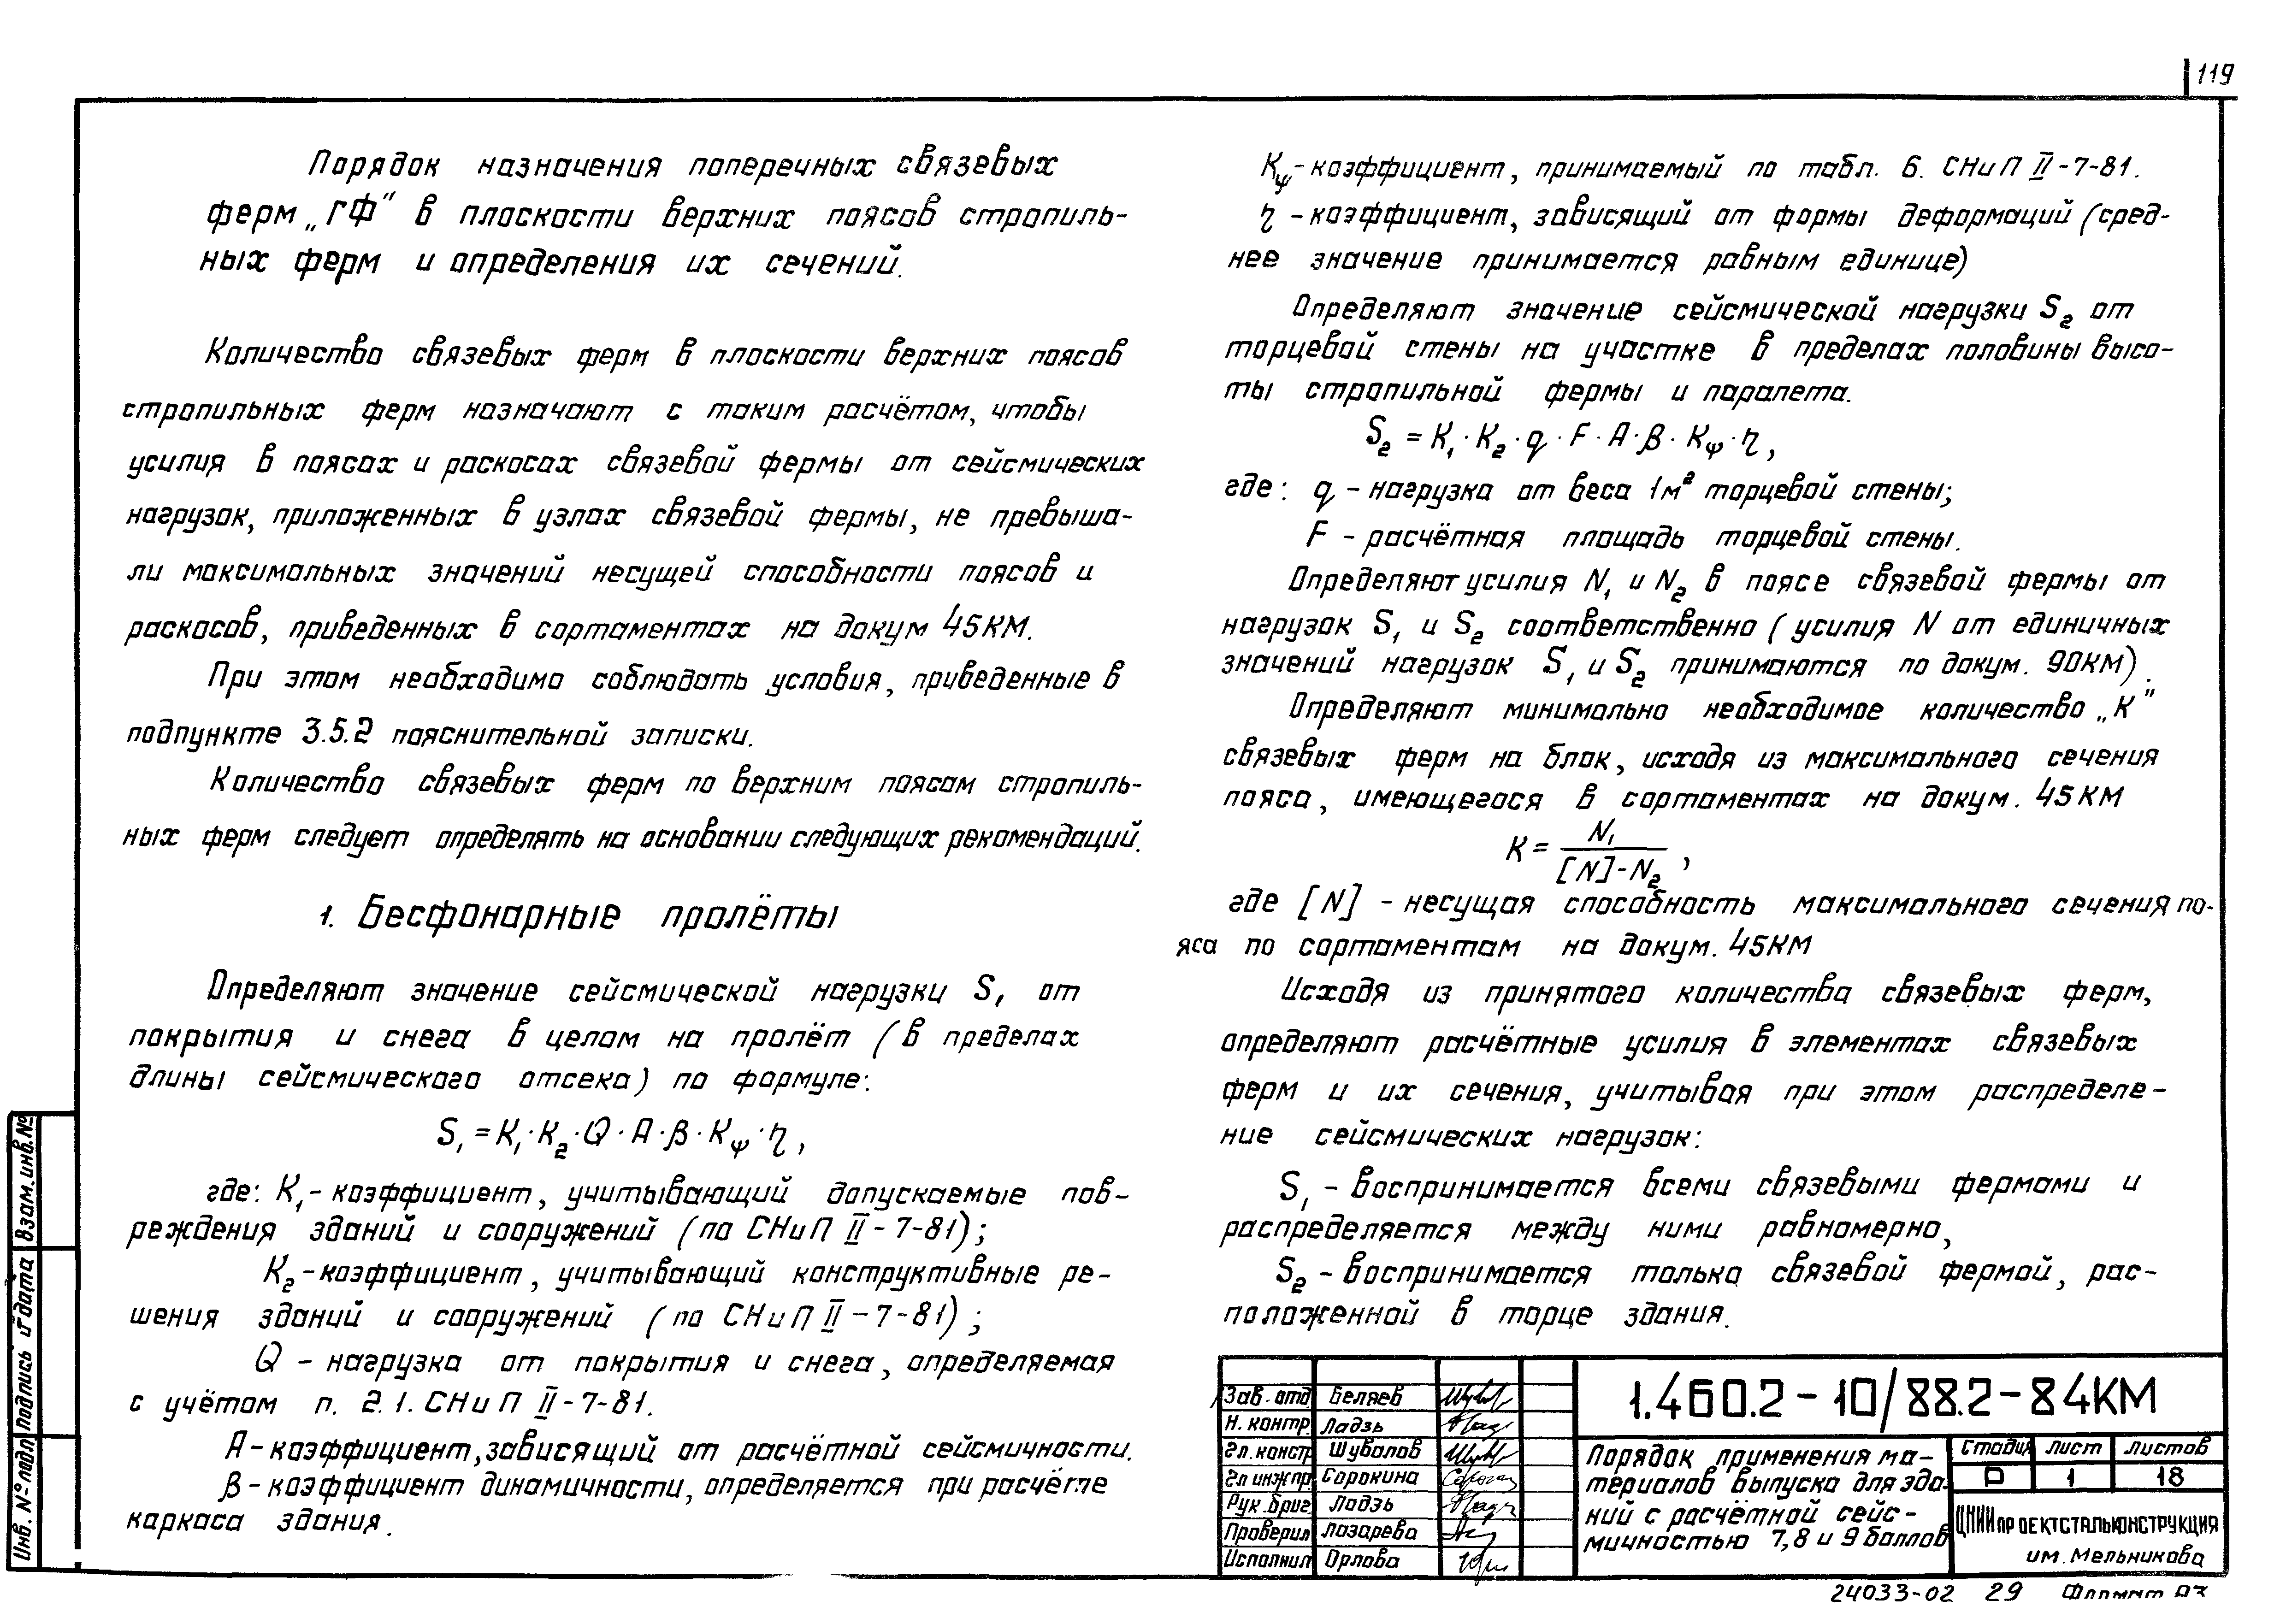 119
Порядок назначения поперечных связевых
ферм „ГФ“ в плоскости верхних поясов стропиль-
ных ферм и определения их сечений.
Количество связевых ферм в плоскости верхних поясов
стропильных ферм назначают с таким расчётом, чтобы
усилия в поясах и раскосах связевой фермы от сейсмических
нагрузок, приложенных в узлах связевой фермы, не превыша-
ли максимальных значений несущей способности поясов и
раскосов, приведенных в сортаментах на докум 45КМ.
При этом необходимо соблюдать условия, приведенные в
подпункте 3.5.2 пояснительной записки.
Количество связевых ферм по верхним поясам стропиль-
ных ферм следует определять на основании следующих рекомендаций.
1. Бесфонарные пролёты
Определяют значение сейсмической нагрузки S₁ от
покрытия и снега в целом на пролёт (в пределах
длины сейсмического отсека) по формуле:
S₁ = K₁·K₂·Q·A·β·Kψ·η,
где: K₁ - коэффициент, учитывающий допускаемые пов-
реждения зданий и сооружений (по СНиП II-7-81);
K₂ - коэффициент, учитывающий конструктивные ре-
шения зданий и сооружений (по СНиП II-7-81);
Q - нагрузка от покрытия и снега, определяемая
с учётом п. 2.1. СНиП II-7-81.
A - коэффициент, зависящий от расчётной сейсмичности.
β - коэффициент динамичности, определяется при расчёте
каркаса здания.
Kψ - коэффициент, принимаемый по табл. 6. СНиП II-7-81.
η - коэффициент, зависящий от формы деформаций (сред-
нее значение принимается равным единице)
Определяют значение сейсмической нагрузки S₂ от
торцевой стены на участке в пределах половины высо-
ты стропильной фермы и парапета.
S₂ = K₁·K₂·q·F·A·β·Kψ·η,
где: q - нагрузка от веса 1м² торцевой стены;
F - расчётная площадь торцевой стены.
Определяют усилия N₁ и N₂ в поясе связевой фермы от
нагрузок S₁ и S₂ соответственно (усилия N от единичных
значений нагрузок S₁ и S₂ принимаются по докум. 90КМ).
Определяют минимально необходимое количество „К"
связевых ферм на блок, исходя из максимального сечения
пояса, имеющегося в сортаментах на докум. 45КМ
K = N₁ / [N]-N₂ ,
где [N] - несущая способность максимального сечения по-
яса по сортаментам на докум. 45КМ
Исходя из принятого количества связевых ферм,
определяют расчётные усилия в элементах связевых
ферм и их сечения, учитывая при этом распределе-
ние сейсмических нагрузок:
S₁ - воспринимается всеми связевыми фермами и
распределяется между ними равномерно,
S₂ - воспринимается только связевой фермой, рас-
положенной в торце здания.
Инв. № подл Подпись и дата Взам. инв. №
Зав. отд Беляев
Н. контр Ладзь
Гл. констр Шувалов
Гл инж пр. Сорокина
Рук. бриг. Ладзь
Проверил Лазарева
Исполнил Орлова
1.460.2-10/88.2-84КМ
Порядок применения ма-
териалов выпуска для зда-
ний с расчётной сейс-
мичностью 7,8 и 9 баллов
Стадия Лист Листов
Р 1 18
ЦНИИПРОЕКТСТАЛЬКОНСТРУКЦИЯ
им. Мельникова
24033-02 29 Формат А3